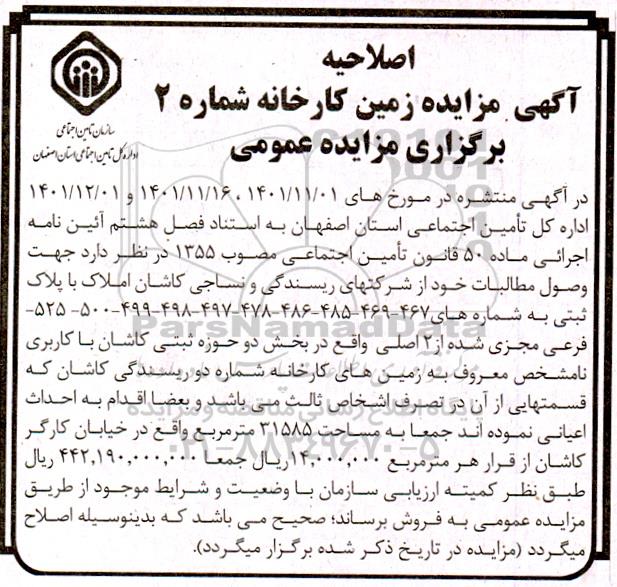 اصلاحیه
آگهی مزایده زمین کارخانه شماره ۲
برگزاری مزایده عمومی
سازمان تامین اجتماعی
اداره کل تامین اجتماعی استان اصفهان
در آگهی منتشره در مورخ های ۱۴۰۱/۱۱/۰۱ ، ۱۴۰۱/۱۱/۱۶ و ۱۴۰۱/۱۲/۰۱
اداره کل تأمین اجتماعی استان اصفهان به استناد فصل هشتم آئین نامه
اجرائی ماده ۵۰ قانون تأمین اجتماعی مصوب ۱۳۵۵ در نظر دارد جهت
وصول مطالبات خود از شرکتهای ریسندگی و نساجی کاشان املاک با پلاک
ثبتی به شماره های۴۶۷-۴۶۹-۴۸۵-۴۸۶-۴۷۸-۴۹۷-۴۹۸-۴۹۹-۵۰۰- ۵۲۵-
فرعی مجزی شده از ۲ اصلی واقع در بخش دو حوزه ثبتی کاشان با کاربری
نامشخص معروف به زمین های کارخانه شماره دو ریسندگی کاشان که
قسمتهایی از آن در تصرف اشخاص ثالث می باشد و بعضا اقدام به احداث
اعیانی نموده اند جمعا به مساحت ۳۱۵۸۵ مترمربع واقع در خیابان کارگر
کاشان از قرار هر مترمربع ۱۴,۰۰۰,۰۰۰ریال جمعا ۴۴۲,۱۹۰,۰۰۰,۰۰۰ ریال
طبق نظر کمیته ارزیابی سازمان با وضعیت و شرایط موجود از طریق
مزایده عمومی به فروش برساند؛ صحیح می باشد که بدینوسیله اصلاح
میگردد (مزایده در تاریخ ذکر شده برگزار میگردد).
ParsNamadData
پایگاه اطلاع رسانی مناقصه و مزایده
۰۲۱-۸۸۳۴۹۶۷۰-۵